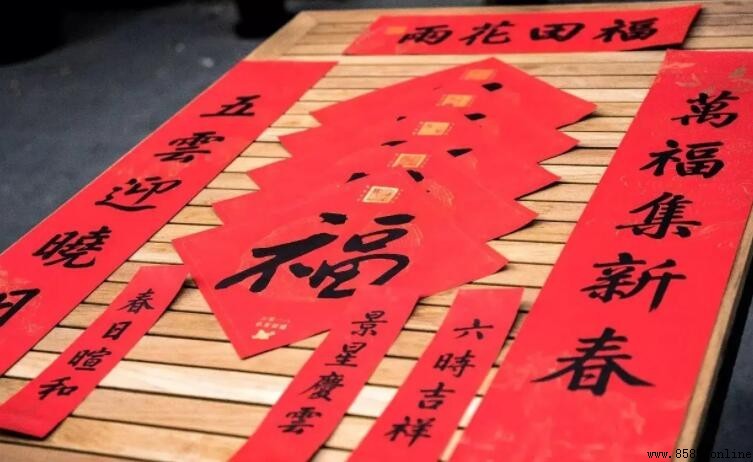 福田花雨
萬福集新春
五雲迎曉日
福
春日暄和
景星慶雲
六時吉祥